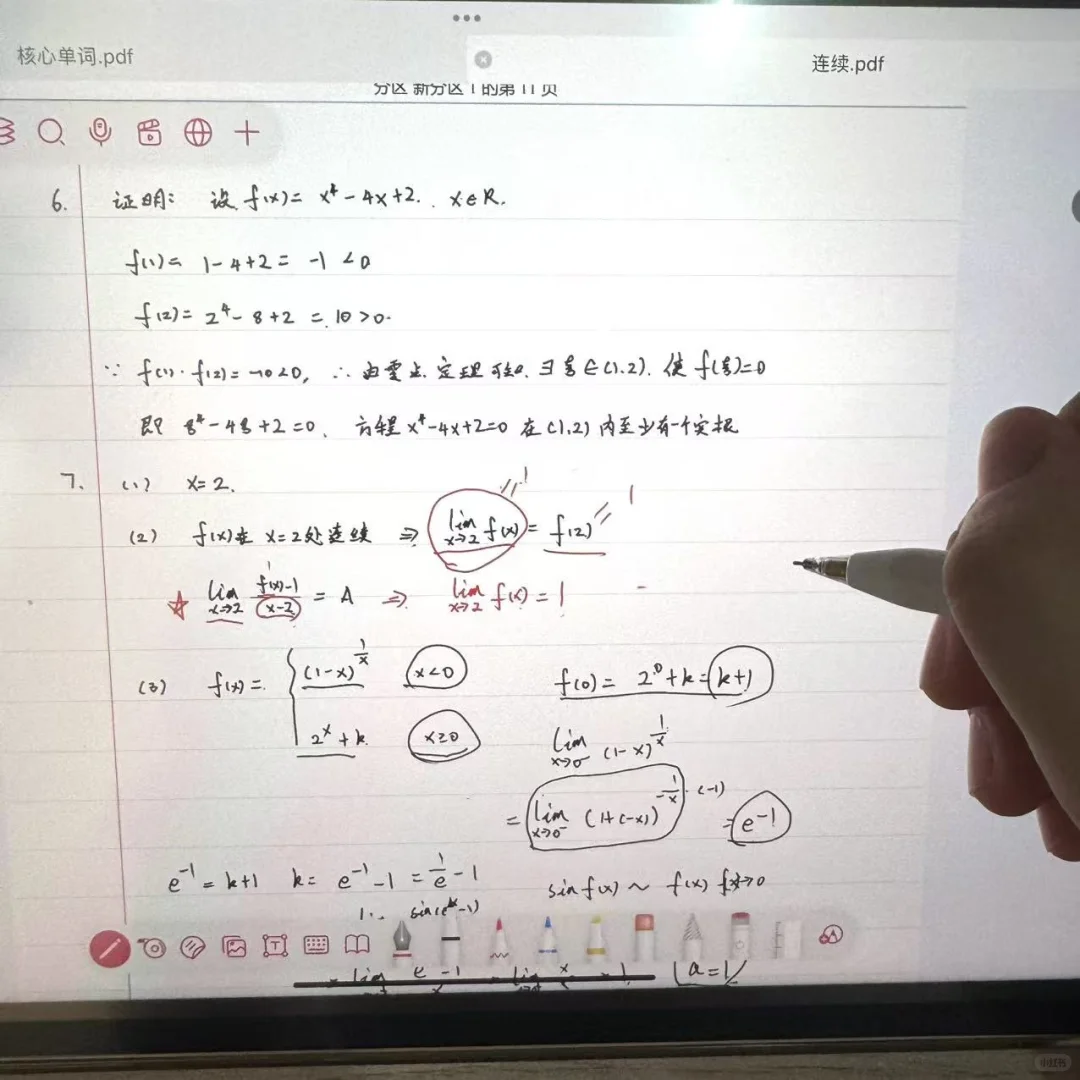 核心单词.pdf
连续.pdf
分区 新分区 1 的第 11 页
6. 证明: 设 f(x)= x⁴-4x+2. x∈R.
f(1)= 1-4+2= -1 <0
f(2)= 2⁴-8+2 = 10>0.
∵ f(1)·f(2)= -10<0, ∴ 由零点定理可知. ∃ξ∈(1,2). 使 f(ξ)=0
即 ξ⁴-4ξ+2=0, 方程 x⁴-4x+2=0 在(1,2)内至少有一个实根
7. (1) x=2.
(2) f(x)在 x=2处连续 ⇒ lim x→2 f(x) = f(2) 1 1
☆ lim x→2 f(x)-1 / x-2 = A ⇒ lim x→2 f(x) = 1
(3) f(x)= { (1-x)^(1/x) x<0 f(0)= 2⁰+k=k+1
2ˣ+k. x≥0 lim x→0⁻ (1-x)^(1/x)
= lim x→0⁻ (1+(-x))^(-1/x)·(-1) = e⁻¹
e⁻¹=k+1 k= e⁻¹-1 = 1/e -1 sinf(x) ~ f(x) f(x)→0
sin(eˣ-1)
(a=1
小红书